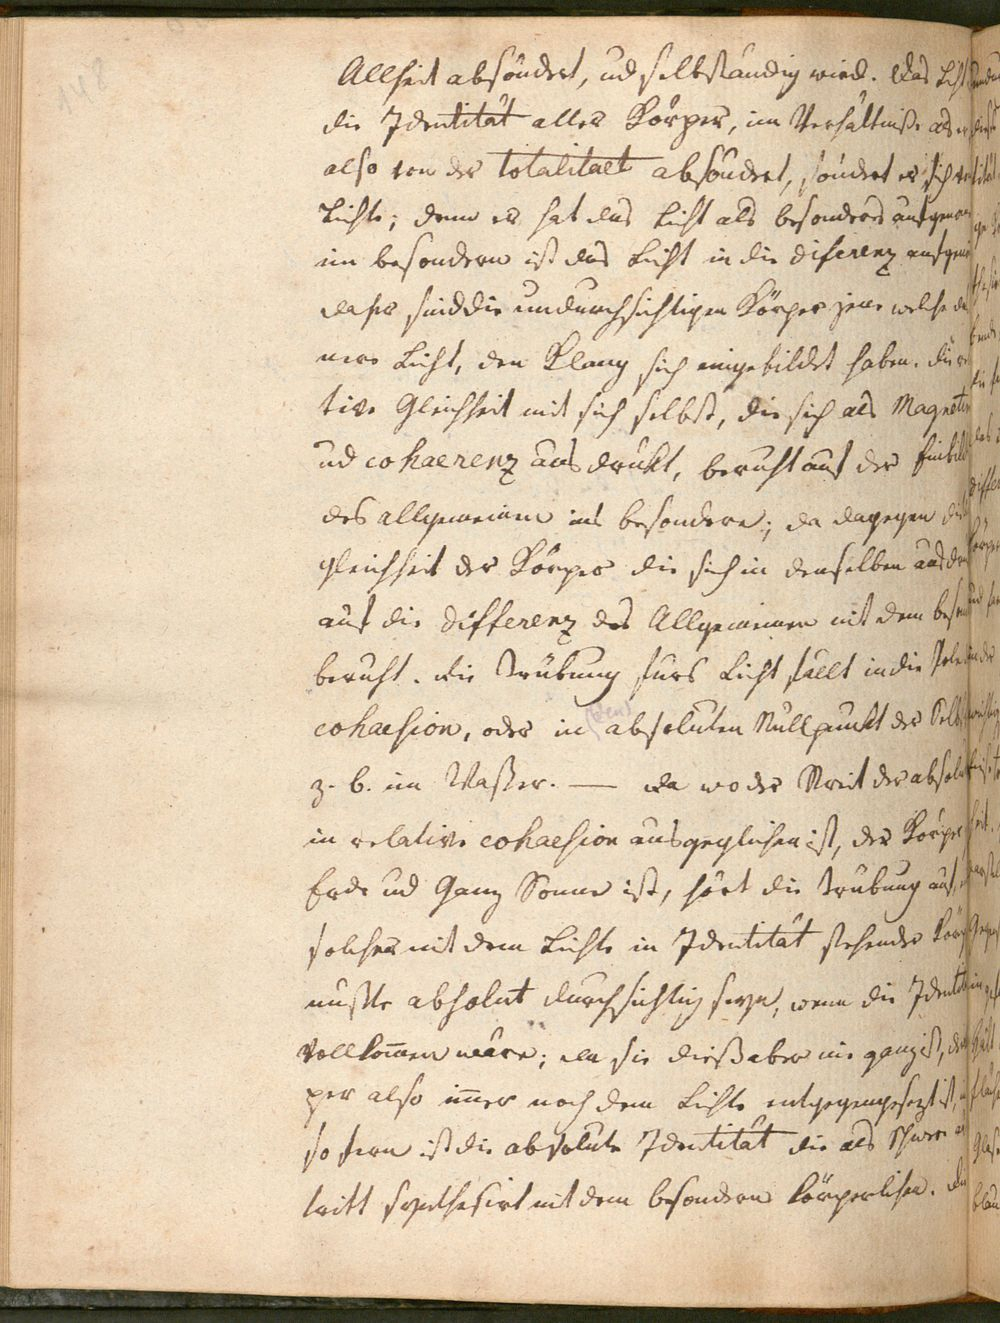 148
Allheit absöndert, ud selbständig wird. Das Licht
die Identität aller Körper, im Verhältniße als er
also von der totalitaet absöndert, söndert er sich vom
Lichte; denn er hat das Licht als besonders aufgenom
im besondern ist das Licht in die diferenz aufgeno
daher sind die undurchsichtigen Körper jene welche da
nere Licht, den Klang sich eingebildet haben. Die rela
tive Gleichheit mit sich selbst, die sich als Magnetis
ud cohaerenz ausdrükt, beruht auf der Einbild
des allgemeinen ins besondere; da dagegen die
gleichheit der Körper die sich in denselben ausdrü
auf die differenz des Allgemeinen mit dem beson
beruht. Die Trübung furs Licht fällt in die Pole der
cohaesion, oder in (den) absoluten Nullpunkt der Selbst
z. b. im Waßer. — Da wo der Streit der absolut
in relative cohaesion ausgeglichen ist, der Körper
Erde und Ganz Sonne ist, hört die Trübung auf,
solcher mit dem Lichte in Identität stehender Körp
mußte absolut durchsichtig seyn, wenn die Identit
vollkom̄en wäre; da sie dieß aber nie ganz ist, der
per also im̄er noch dem Lichte entgegengesezt ist,
so fern ist die absolute Identität die als Schwere
tritt synthesirt mit dem besondern körperlichen. Die